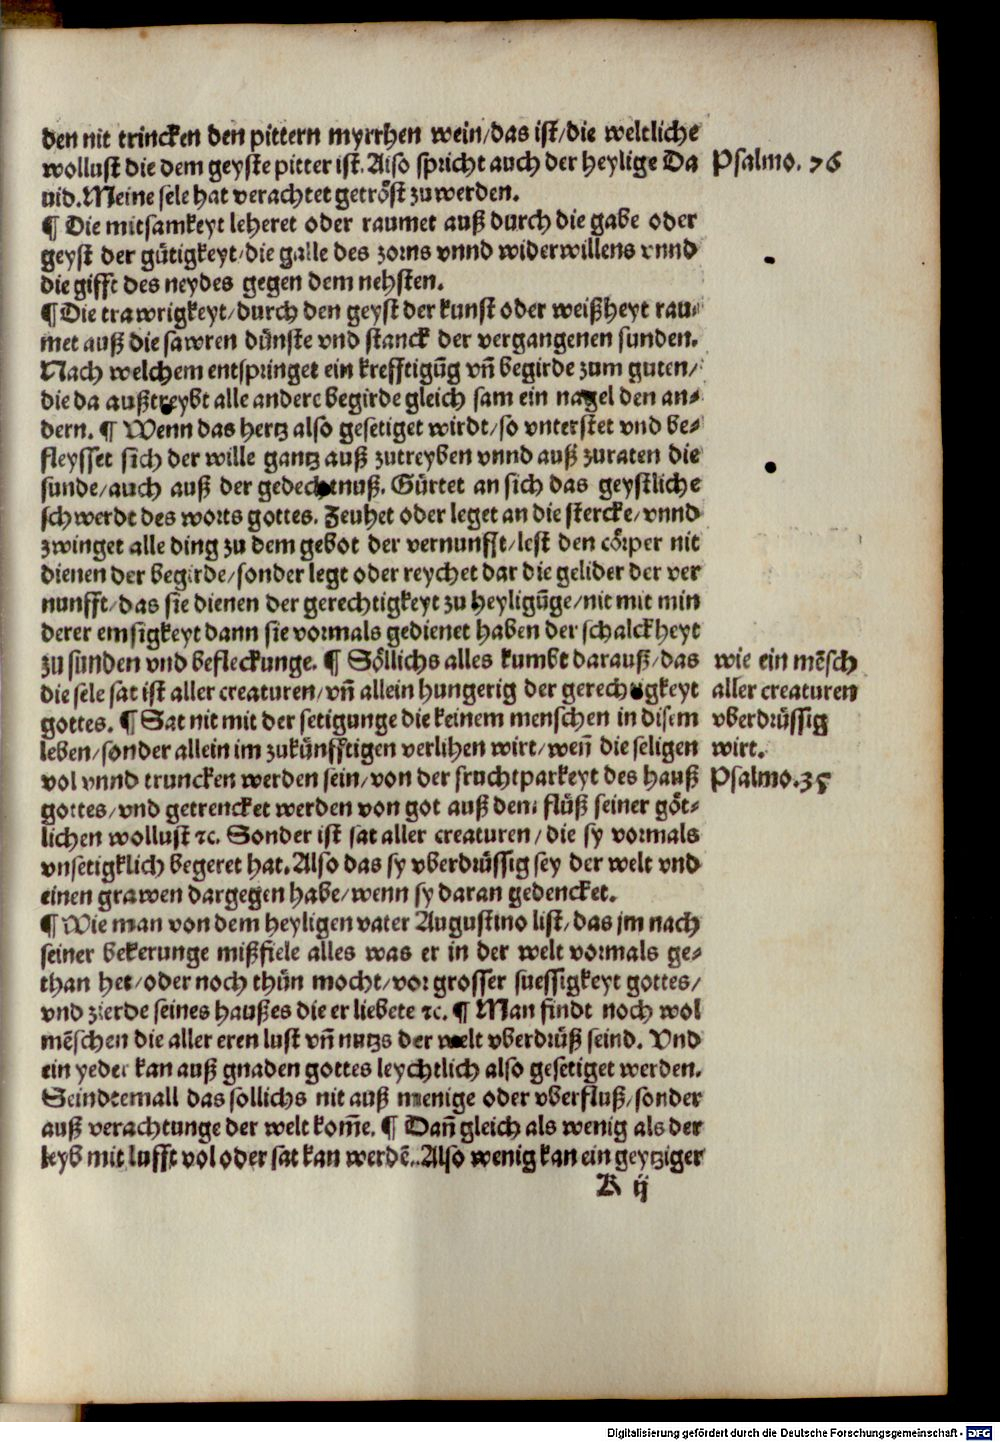 den nit trincken den pittern myrrhen wein/das ist/die weltliche
wollust die dem geyste pitter ist. Also spricht auch der heylige Da
uid. Meine sele hat verachtet getröst zu werden.
Psalmo. 76
¶ Die mitsamkeyt leheret oder raumet auß durch die gabe oder
geyst der gütigkeyt/die galle des zorns vnnd widerwillens vnnd
die gifft des neydes gegen dem nehsten.
¶ Die trawrigkeyt/durch den geyst der kunst oder weißheyt rau-
met auß die sawren dünste vnd stanck der vergangenen sunden.
Nach welchem entspringet ein krefftigūg vn̄ begirde zum guten/
die da außtreybt alle andere begirde gleich sam ein nagel den an-
dern. ¶ Wenn das hertz also gesetiget wirdt/so vnterstet vnd be-
fleysset sich der wille gantz auß zutreyben vnnd auß zuraten die
sunde/auch auß der gedechtnuß. Gürtet an sich das geystliche
schwerdt des worts gottes. Zeuhet oder leget an die stercke/vnnd
zwinget alle ding zu dem gebot der vernunfft/lest den cörper nit
dienen der begirde/sonder legt oder reychet dar die gelider der ver
nunfft/das sie dienen der gerechtigkeyt zu heyligūge/nit mit min
derer emsigkeyt dann sie vormals gedienet haben der schalckheyt
zu sunden vnd befleckunge. ¶ Söllichs alles kumbt darauß/das
die sele sat ist aller creaturen/vn̄ allein hungerig der gerechtigkeyt
gottes. ¶ Sat nit mit der setigunge die keinem menschen in disem
leben/sonder allein im zukünfftigen verlihen wirt/wen̄ die seligen
vol vnnd truncken werden sein/von der fruchtparkeyt des hauß
gottes/vnd getrencket werden von got auß dem flüß seiner göt-
lichen wollust ꝛc. Sonder ist sat aller creaturen/die sy vormals
vnsetigklich begeret hat. Also das sy vberdrüssig sey der welt vnd
einen grawen dargegen habe/wenn sy daran gedencket.
wie ein mēsch
aller creaturen
vberdrüssig
wirt.
Psalmo.35
¶ Wie man von dem heyligen vater Augustino list/das jm nach
seiner bekerunge mißfiele alles was er in der welt vormals ge-
than het/oder noch thün mocht/vor grosser suessigkeyt gottes/
vnd zierde seines haußes die er liebete ꝛc. ¶ Man findt noch wol
mēschen die aller eren lust vn̄ nutzs der welt vberdrüß seind. Vnd
ein yeder kan auß gnaden gottes leychtlich also gesetiget werden.
Seindtemall das sollichs nit auß menige oder vberfluß/sonder
auß verachtunge der welt kom̄e. ¶ Dan̄ gleich als wenig als der
leyb mit lufft vol oder sat kan werdē. Also wenig kan ein geytziger
A ij
Digitalisierung gefördert durch die Deutsche Forschungsgemeinschaft - DFG